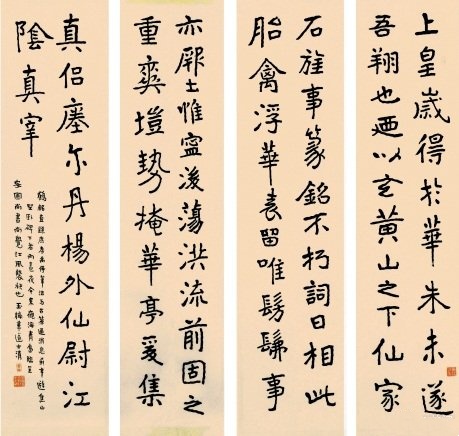 上皇歲得於華朱未遂
吾翔也迺以玄黃山之下仙家
石旌事篆銘不朽詞曰相此
胎禽浮華表留唯髣髴事
亦厥土惟寍後蕩洪流前固之
重爽塏勢掩華亭爰集
真侶瘞尔丹楊外仙尉江
陰真宰